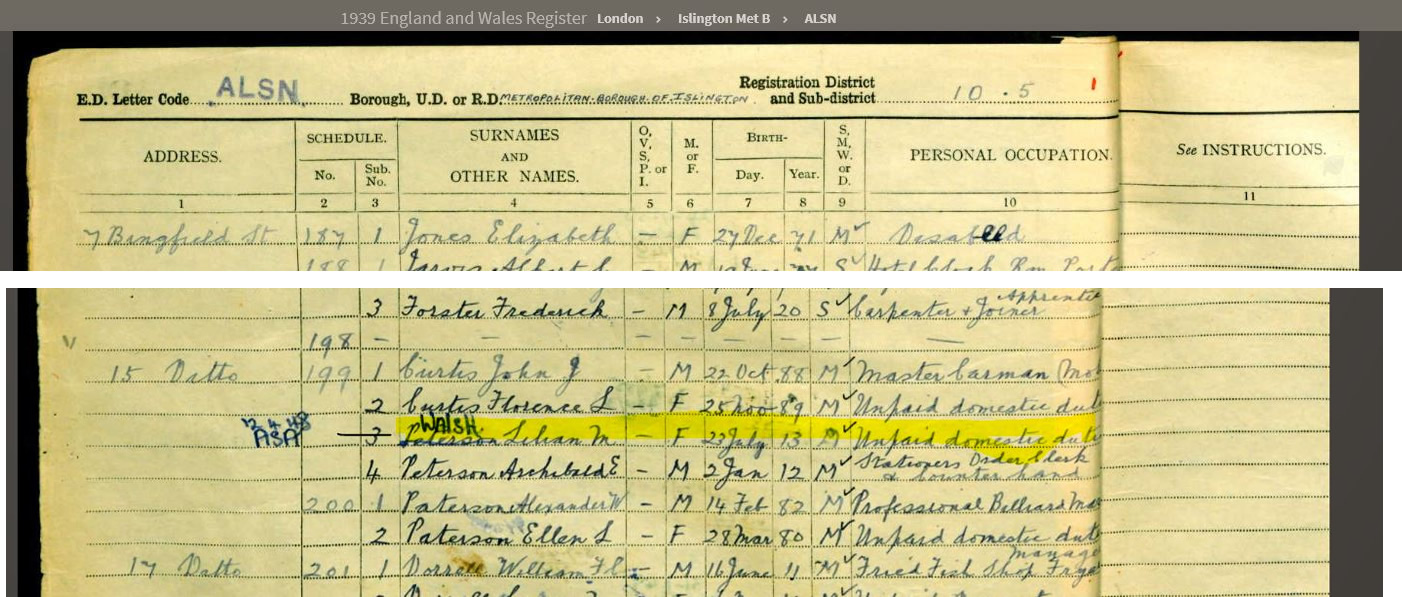 1939 England and Wales Register London › Islington Met B › ALSN
E.D. Letter Code ALSN Borough, U.D. or R.D. METROPOLITAN·BOROUGH·OF·ISLINGTON Registration District and Sub-district 10·5
ADDRESS. SCHEDULE. No. Sub. No. SURNAMES AND OTHER NAMES. O, V, S, P. or I. M. or F. BIRTH- Day. Year. S, M, W. or D. PERSONAL OCCUPATION. See INSTRUCTIONS.
1 2 3 4 5 6 7 8 9 10 11
7 Bingfield St 187 1 Jones Elizabeth – F 27 Dec 71 M Disabled
188 1 Albert M S Hotel
3 Forster Frederick – M 8 July 20 S Carpenter & Joiner Apprentice
198 – – – – – – – –
15 Ditto 199 1 Curtis John J – M 22 Oct 88 M Master Carman
2 Curtis Florence L – F 25 Nov 89 M Unpaid domestic dut
WALSH
3 Peterson Lilian M – F 23 July 13 M Unpaid domestic dut
4 Peterson Archibald E – M 2 Jan 12 M Stationers Order Clerk & Counter hand
200 1 Paterson Alexander W – M 14 Feb 82 M Professional Billiard
2 Paterson Ellen L – F 28 Mar 80 M Unpaid domestic dut
17 Ditto 201 1 William – M 16 June 11 M Fried Fish Shop manage